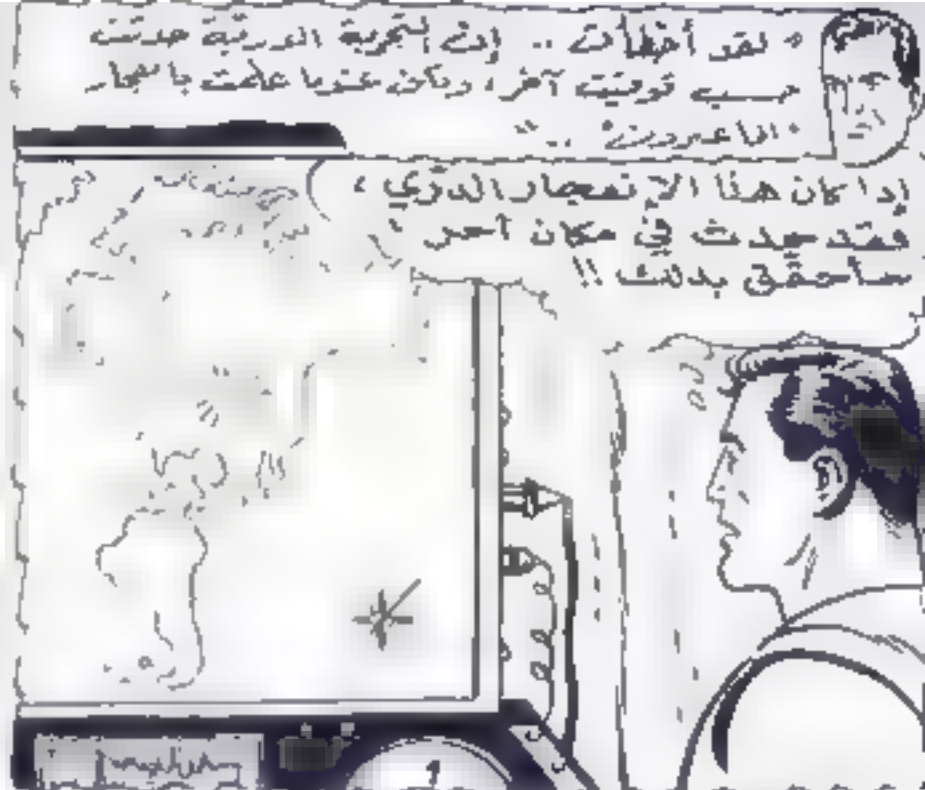 " لقد أخطأت .. إن التجربة الذرية حدثت
حسب توقيت آخر، ولكن عندما علمت بانفجار
" .. "
إذا كان هذا الإنفجار الذري ،
فقد حدث في مكان آخر
سأحقق بذلك !!
1